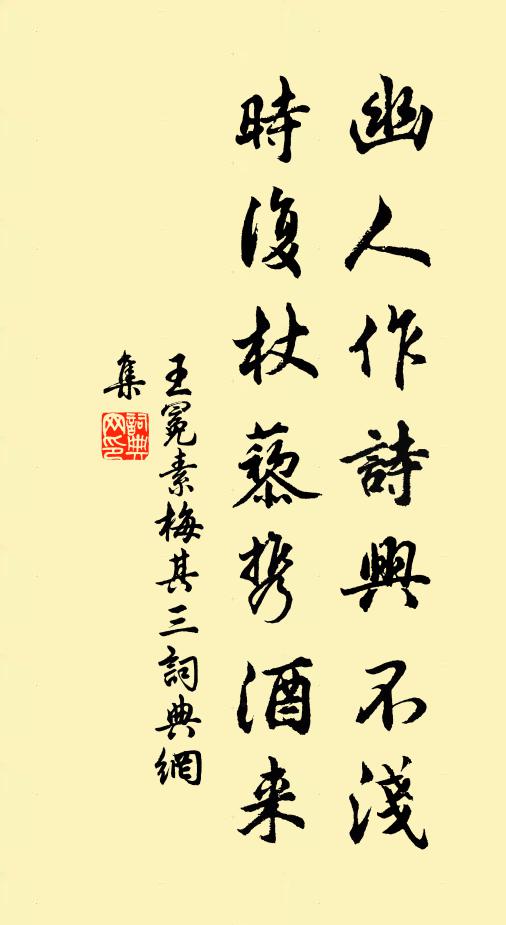 幽人作詩興不淺
時復杖藜携酒来
王冕素梅其三詞典網
集
詞典网印